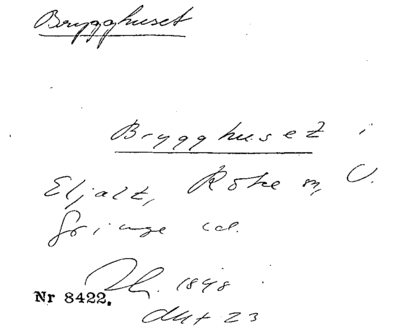 Brygghuset
Brygghuset i
Eljalt, Röke sn, V.
Göinge hd.
1848
Nr 8422.
23